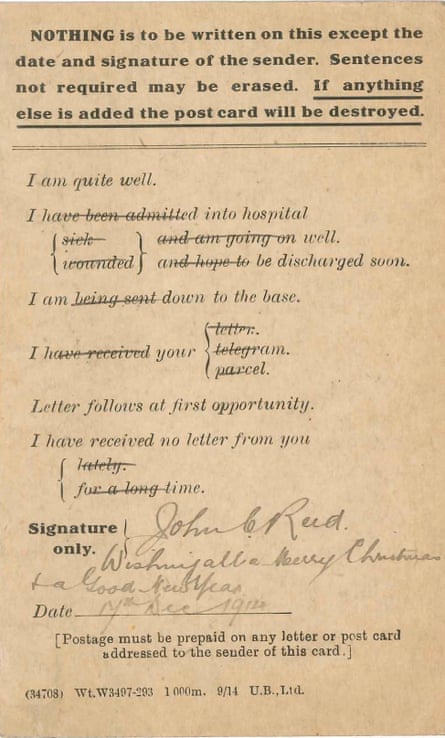 NOTHING is to be written on this except the
date and signature of the sender. Sentences
not required may be erased. If anything
else is added the post card will be destroyed.
I am quite well.
I have been admitted into hospital
sick and am going on well.
wounded and hope to be discharged soon.
I am being sent down to the base.
letter.
I have received your telegram.
parcel.
Letter follows at first opportunity.
I have received no letter from you
lately.
for a long time.
Signature only. John C Reid.
Wishing all a Merry Christmas
& a Good New Year
Date 17th Dec 1914
[Postage must be prepaid on any letter or post card
addressed to the sender of this card.]
(34708) Wt.W3497-293 1000m. 9/14 U.B.,Ltd.